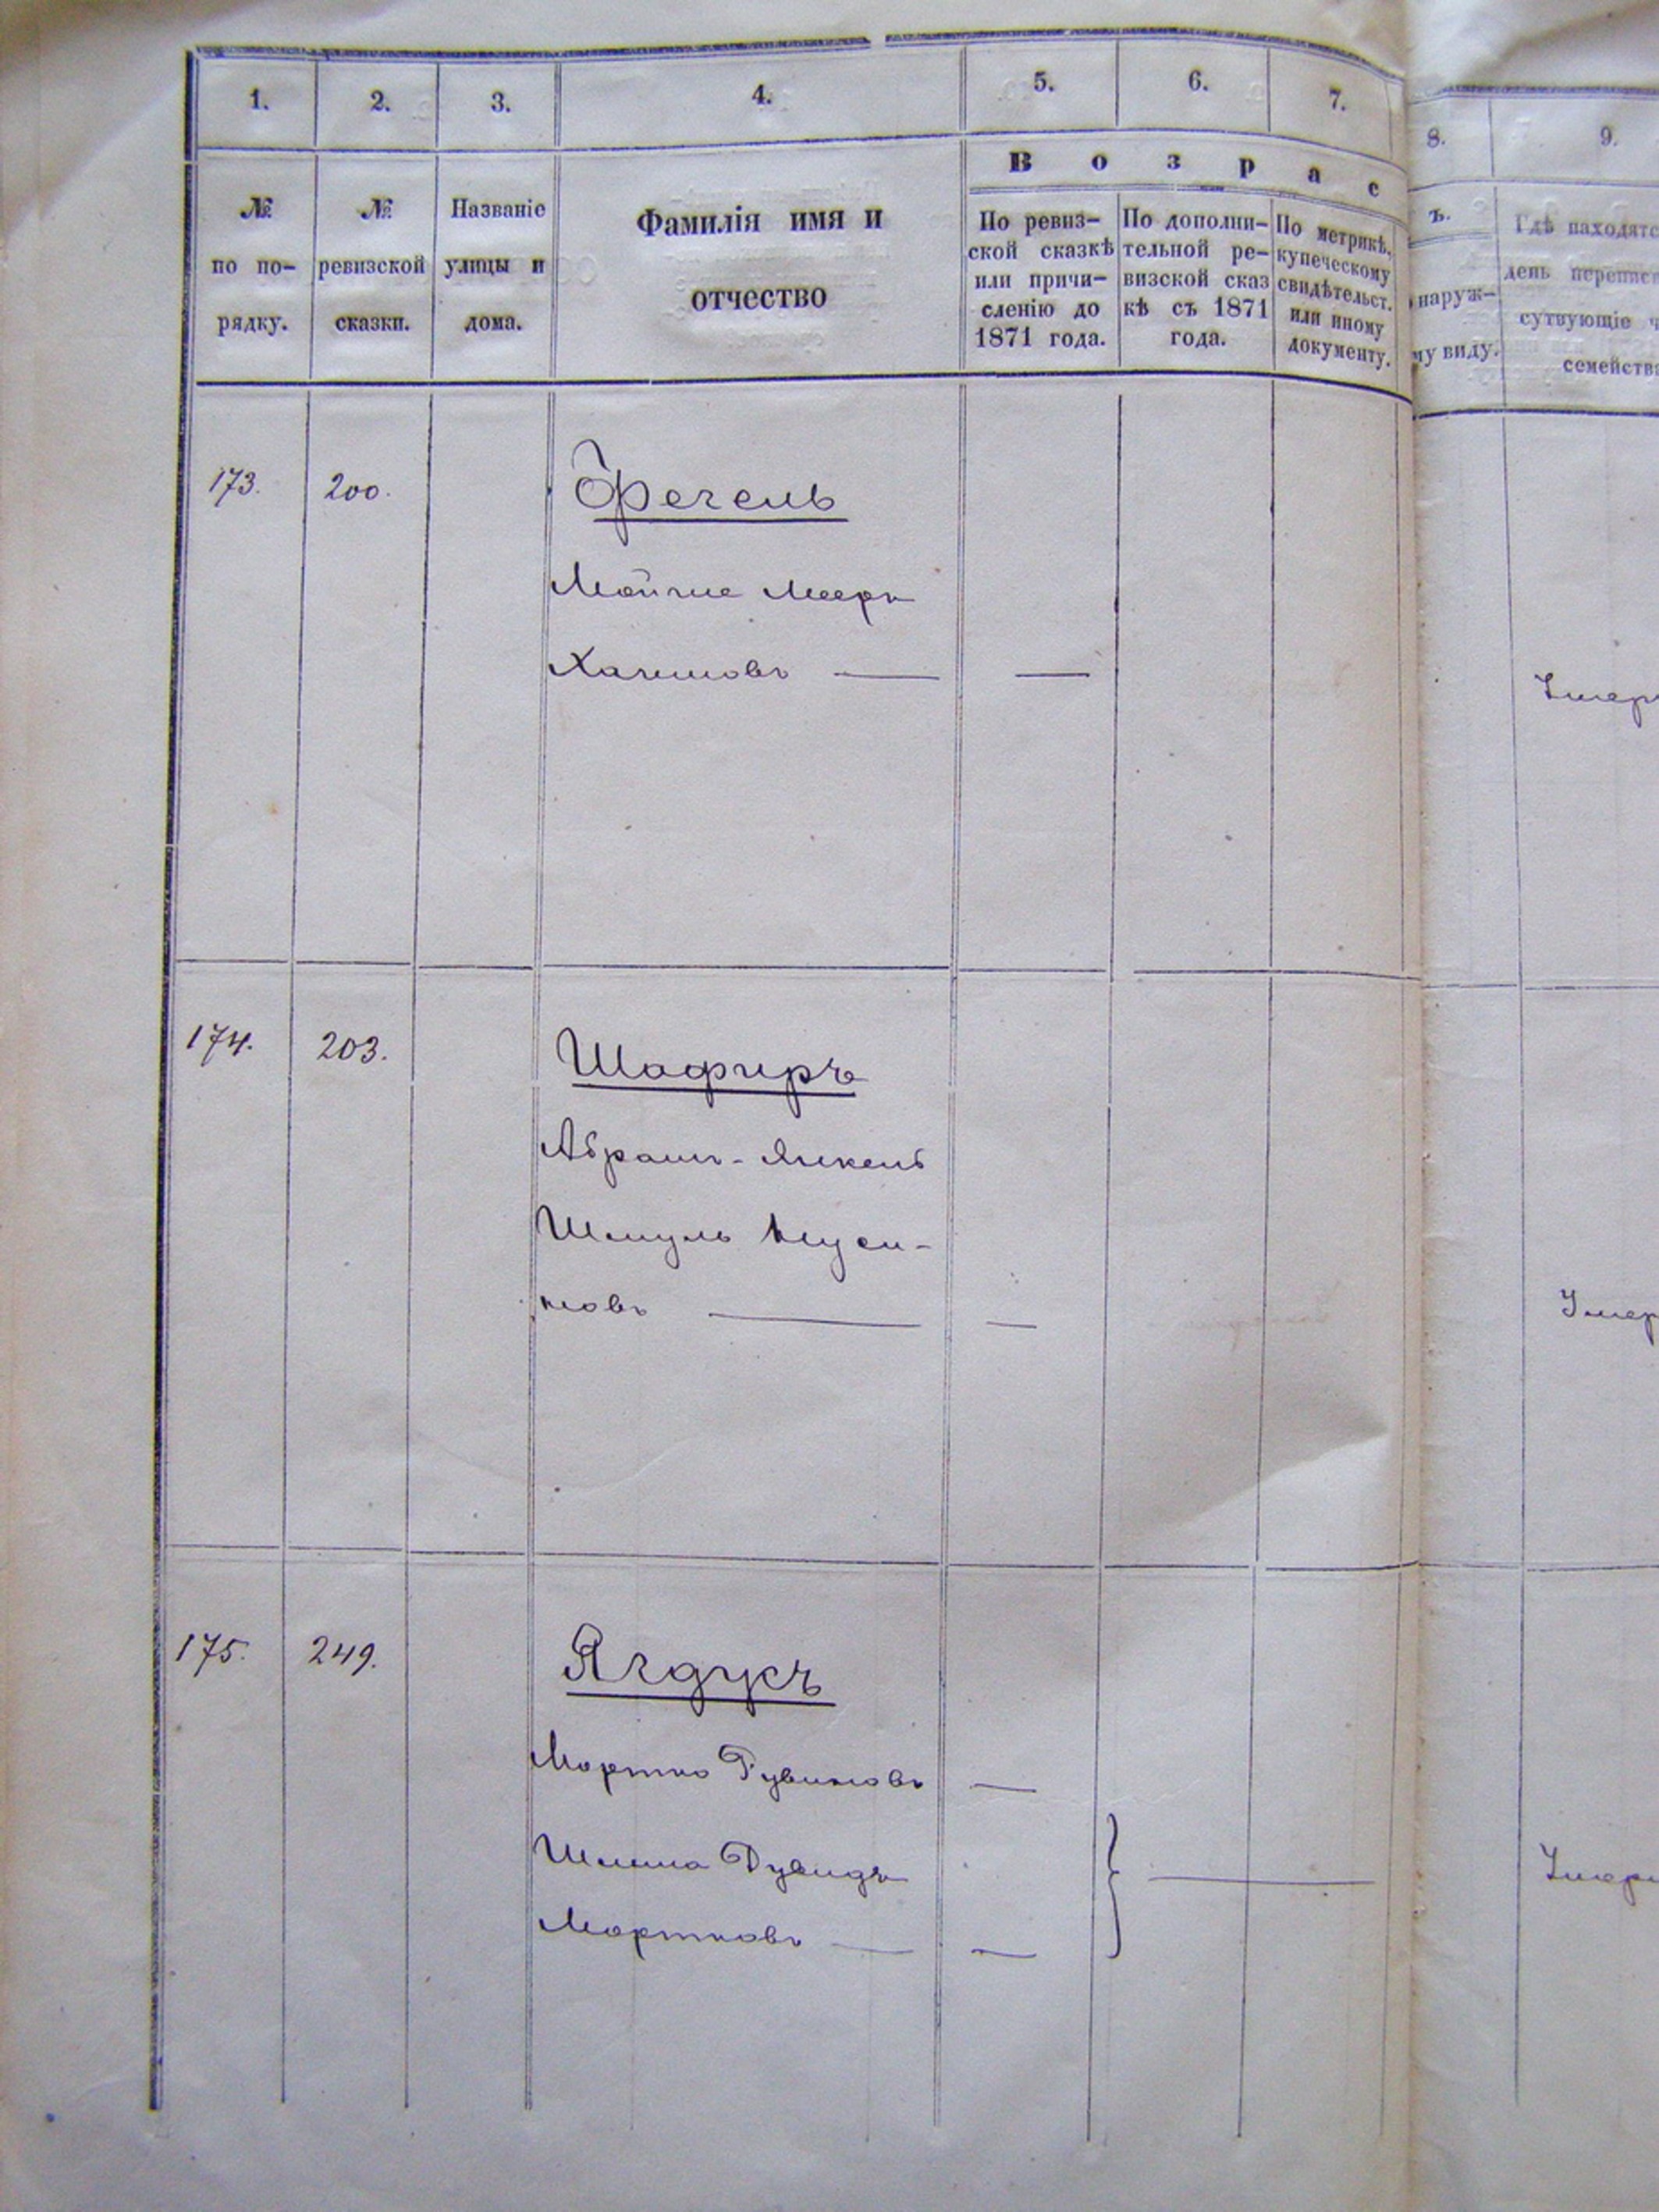 1. 2. 3. 4. 5. 6. 7. 8. 9.
Возрас
ъ.
№ по по-рядку.
№ ревизской сказки.
Названіе улицы и дома.
Фамилія имя и отчество
По ревиз-
ской сказкѣ
или причи-
сленію до
1871 года.
По дополни-
тельной ре-
визской сказ
кѣ съ 1871
года.
По метрикѣ,
купеческому
свидѣтельст.
или иному
документу.
наруж-
му виду.
Гдѣ находятс
день переписи
сутвующіе ч
семейства
173. 200. Фегель
Мойше Мееръ
Хаимовъ
Умер
174. 203. Шафиръ
Абрамъ-Янкель
Шмуль Нуси-
новъ
Умер
175. 249. Ягдукъ
Мортко Рувиновъ
Шлима Дувидъ
Мортковъ
Умер